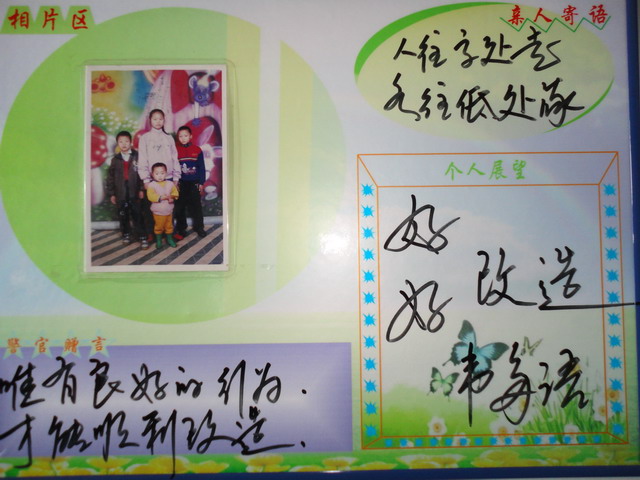 相片区
亲人寄语
人往高处走
水往低处流
个人展望
好
好
改造
警官赠言
唯有良好的行为.
才能顺利改造.